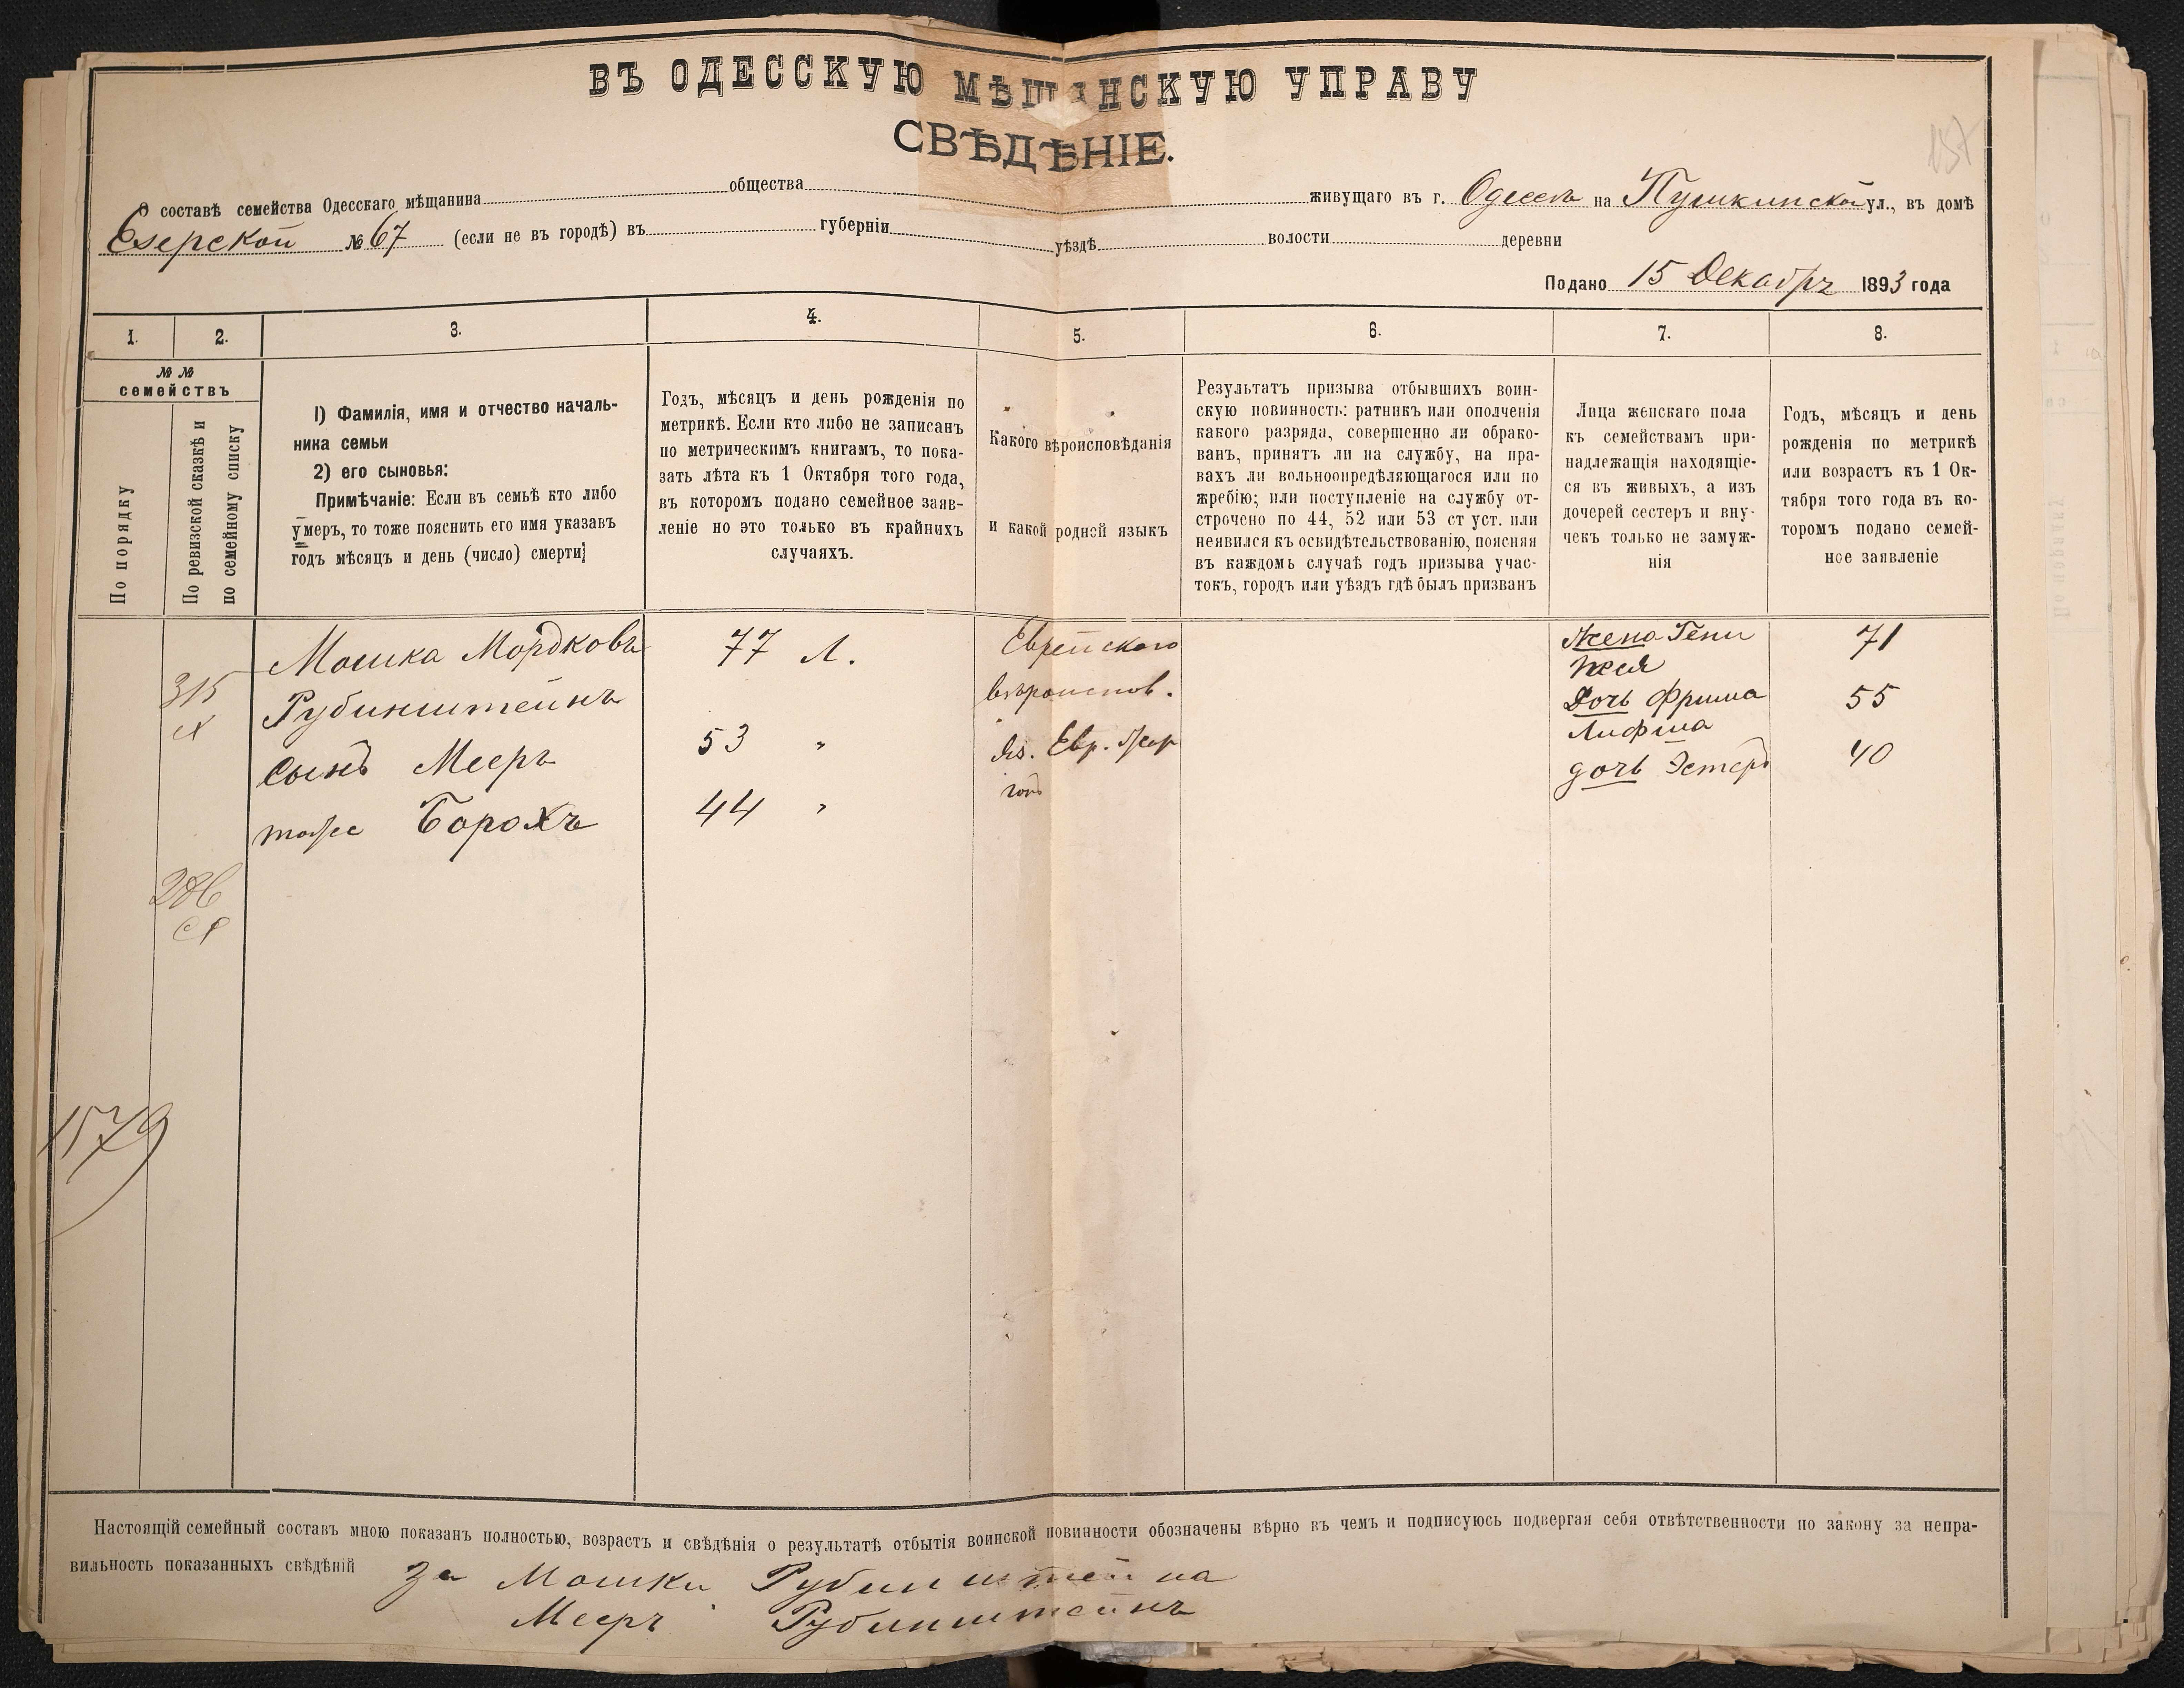 ВЪ ОДЕССКУЮ МѢЩАНСКУЮ УПРАВУ
СВѢДѢНІЕ.
157
О составѣ семейства Одесскаго мѣщанина общества живущаго въ г. Одессѣ на Пушкинской ул., въ домѣ
Езерской № 67 (если не въ городѣ) въ губерніи уѣздѣ волости деревни
Подано 15 Декабрь 1893 года
1. 2. 3. 4. 5. 6. 7. 8.
№ №
семействъ
По порядку
По ревизской сказкѣ и
по семейному списку
1) Фамилія, имя и отчество началь-
ника семьи
2) его сыновья:
Примѣчаніе: Если въ семьѣ кто либо
умеръ, то тоже пояснить его имя указавъ
годъ мѣсяцъ и день (число) смерти;
Годъ, мѣсяцъ и день рожденія по
метрикѣ. Если кто либо не записанъ
по метрическимъ книгамъ, то пока-
зать лѣта къ 1 Октября того года,
въ которомъ подано семейное заяв-
леніе но это только въ крайнихъ
случаяхъ.
Какого вѣроисповѣданія
и какой родной языкъ
Результатъ призыва отбывшихъ воин-
скую повинность: ратникъ или ополченія
какого разряда, совершенно ли обрако-
ванъ, принятъ ли на службу, на пра-
вахъ ли вольноопредѣляющагося или по
жребію; или поступленіе на службу от-
строчено по 44, 52 или 53 ст уст. или
неявился къ освидѣтельствованію, поясняя
въ каждомъ случаѣ годъ призыва учас-
токъ, городъ или уѣздъ гдѣ былъ призванъ
Лица женскаго пола
къ семействамъ при-
надлежащія находящіе-
ся въ живыхъ, а изъ
дочерей сестеръ и вну-
чекъ только не замуж-
нія
Годъ, мѣсяцъ и день
рожденія по метрикѣ
или возрастъ къ 1 Ок-
тября того года въ ко-
торомъ подано семей-
ное заявленіе
315
Мошка Мордковъ 77 л.
Рубинштейнъ
сынъ Мееръ 53 "
тоже Борохъ 44 "
Еврейского
вѣроиспов.
яз. Евр. Жар
гонъ
Жена Гени 71
Дочь Фрима 55
Лифша
дочь Эстеръ 40
286
1579
Настоящій семейный составъ мною показанъ полностью, возрастъ и свѣдѣнія о результатѣ отбытія воинской повинности обозначены вѣрно въ чемъ и подписуюсь подвергая себя отвѣтственности по закону за непра-
вильность показанныхъ свѣдѣній За Мошки Рубинштейна
Мееръ Рубинштейнъ